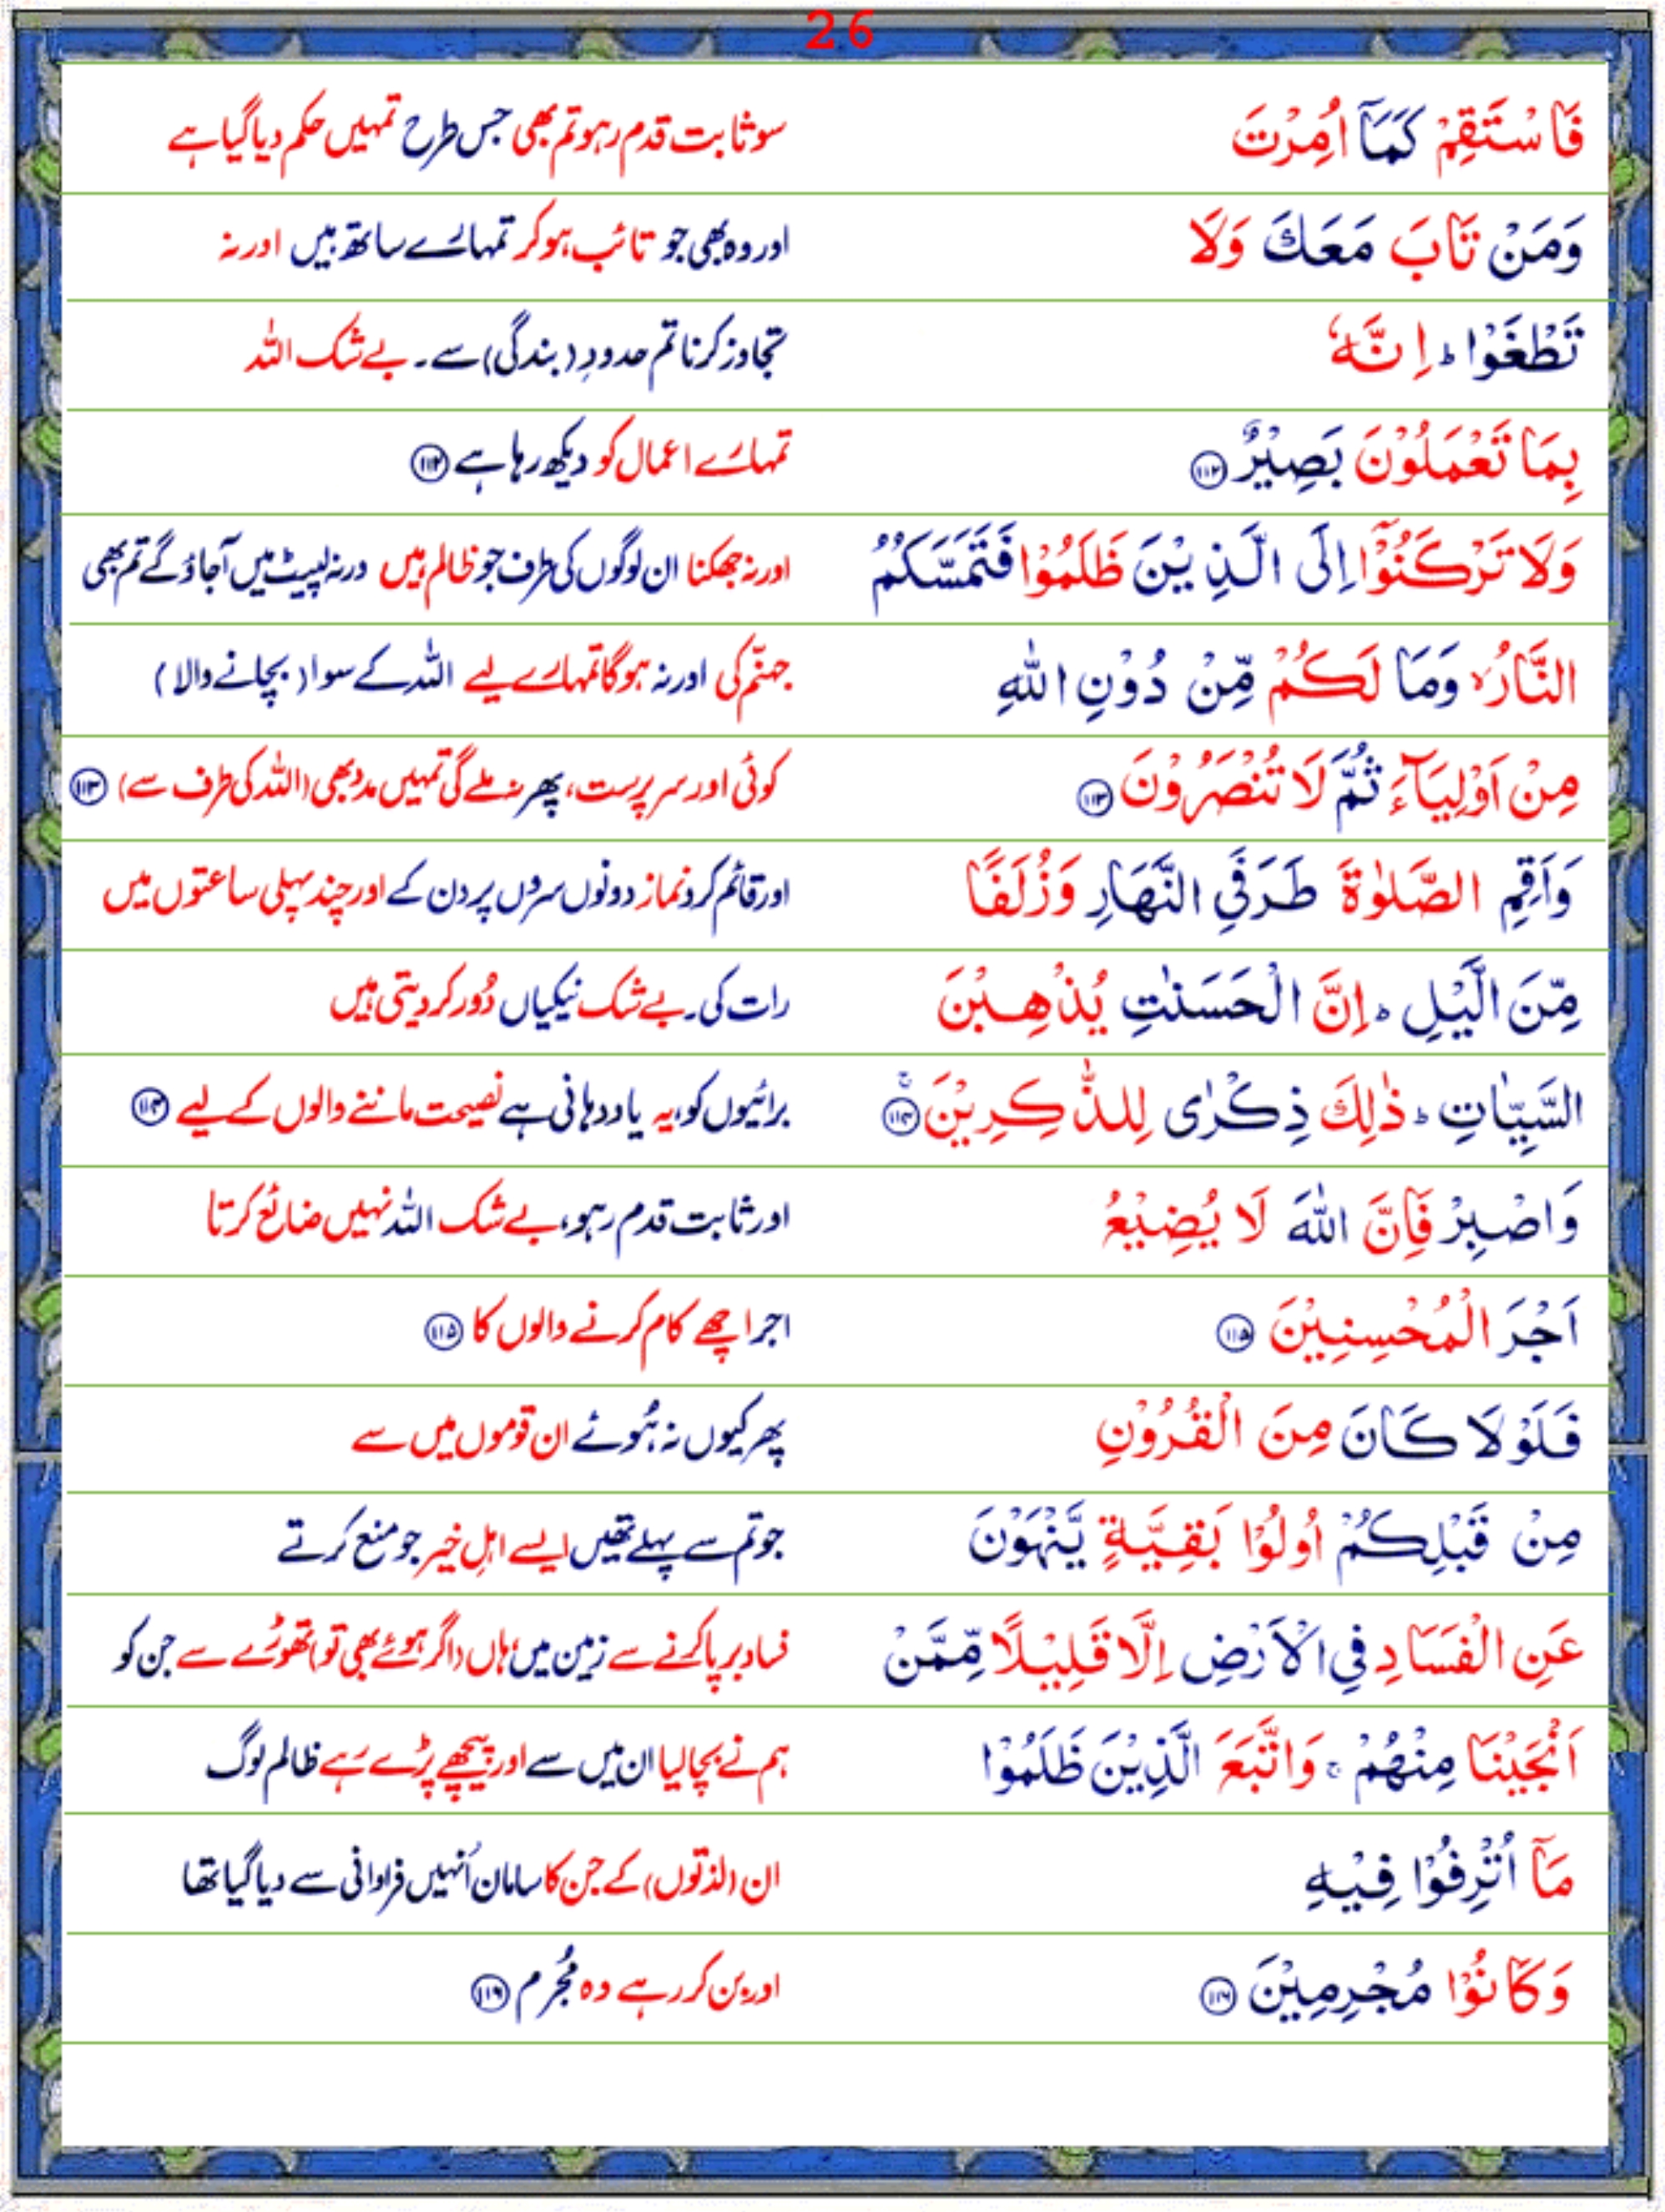 26
فَاسْتَقِمْ كَمَآ اُمِرْتَ سو ثابت قدم رہو تم بھی جس طرح تمہیں حکم دیا گیا ہے
وَمَنْ تَابَ مَعَكَ وَلَا اور وہ بھی جو تائب ہو کر تمہارے ساتھ ہیں اور نہ
تَطْغَوْا ؕ اِنَّهٗ تجاوز کرنا تم حدودِ (بندگی) سے۔ بے شک اللہ
بِمَا تَعْمَلُوْنَ بَصِيْرٌ ۝۱۱۲ تمہارے اعمال کو دیکھ رہا ہے ۝۱۱۲
وَلَا تَرْكَنُوْٓا اِلَى الَّذِيْنَ ظَلَمُوْا فَتَمَسَّكُمُ اور نہ جھکنا ان لوگوں کی طرف جو ظالم ہیں ورنہ لپیٹ میں آجاؤ گے تم بھی
النَّارُ ۙ وَمَا لَكُمْ مِّنْ دُوْنِ اللّٰهِ جہنّم کی اور نہ ہوگا تمہارے لیے اللہ کے سوا (بچانے والا)
مِنْ اَوْلِيَآءَ ثُمَّ لَا تُنْصَرُوْنَ ۝۱۱۳ کوئی اور سرپرست، پھر نہ ملے گی تمہیں مدد بھی (اللہ کی طرف سے) ۝۱۱۳
وَاَقِمِ الصَّلٰوةَ طَرَفَيِ النَّهَارِ وَزُلَفًا اور قائم کرو نماز دونوں سروں پر دن کے اور چند پہلی ساعتوں میں
مِّنَ الَّيْلِ ؕ اِنَّ الْحَسَنٰتِ يُذْهِبْنَ رات کی۔ بے شک نیکیاں دُور کر دیتی ہیں
السَّيِّاٰتِ ؕ ذٰلِكَ ذِكْرٰى لِلذّٰكِرِيْنَ ۚ۝۱۱۴ برائیوں کو، یہ یاددہانی ہے نصیحت ماننے والوں کے لیے ۝۱۱۴
وَاصْبِرْ فَاِنَّ اللّٰهَ لَا يُضِيْعُ اور ثابت قدم رہو، بے شک اللہ نہیں ضائع کرتا
اَجْرَ الْمُحْسِنِيْنَ ۝۱۱۵ اجر اچھے کام کرنے والوں کا ۝۱۱۵
فَلَوْلَا كَانَ مِنَ الْقُرُوْنِ پھر کیوں نہ ہُوئے ان قوموں میں سے
مِنْ قَبْلِكُمْ اُولُوْا بَقِيَّةٍ يَّنْهَوْنَ جو تم سے پہلے تھیں ایسے اہلِ خیر جو منع کرتے
عَنِ الْفَسَادِ فِى الْاَرْضِ اِلَّا قَلِيْلًا مِّمَّنْ فساد برپا کرنے سے زمین میں، ہاں (اگر ہوئے بھی تو) تھوڑے سے جن کو
اَنْجَيْنَا مِنْهُمْ ۚ وَاتَّبَعَ الَّذِيْنَ ظَلَمُوْا ہم نے بچا لیا ان میں سے اور پیچھے پڑے رہے ظالم لوگ
مَآ اُتْرِفُوْا فِيْهِ ان (لذتوں) کے جن کا سامان اُنہیں فراوانی سے دیا گیا تھا
وَكَانُوْا مُجْرِمِيْنَ ۝۱۱۶ اور بن کر رہے وہ مُجرم ۝۱۱۶